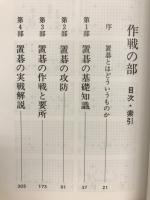 作戦の部 目次・索引
序 置碁とはどういうものか 21
第1部 置碁の基礎知識 37
第2部 置碁の攻防 51
第3部 置碁の作戦と要所 173
第4部 置碁の実戦解説 303